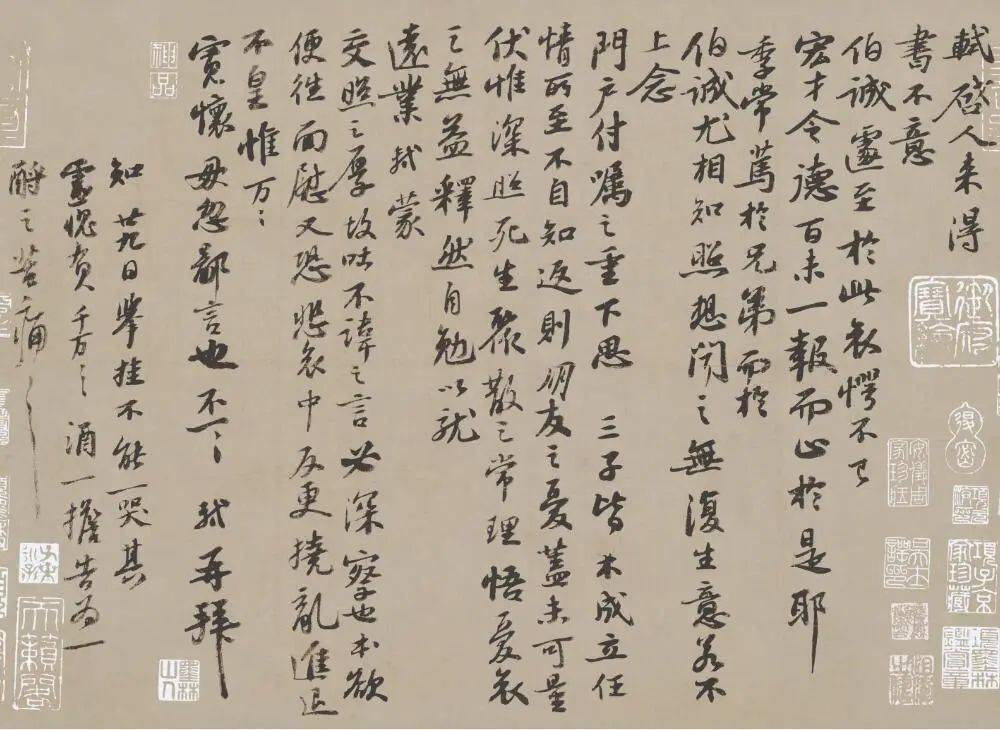 軾啓人来得
書不意
伯誠遽至於此哀愕不已
宏才令德百未一報而止於是耶
季常篤於兄弟而於
伯誠尤相知照想聞之無復生意若不
上念
門户付囑之重下思三子皆未成立任
情所至不自知返則朋友之憂蓋未可量
伏惟深照死生聚散之常理悟憂哀
之無益釋然自勉以就
遠業軾蒙
交照之厚故吐不諱之言必深察也本欲
便往面慰又恐悲哀中反更撓亂進退
不皇惟万〻
寬懷毋忽鄙言也不一〻軾再拜
知廿九日舉挂不能一哭其
靈愧負千万〻酒一擔告為一
酹之苦〻痛〻
神品
御府寶繪
得密
安儀周家珍藏
項子京家珍藏
項墨林鑑賞章
墨林山人
天籟閣